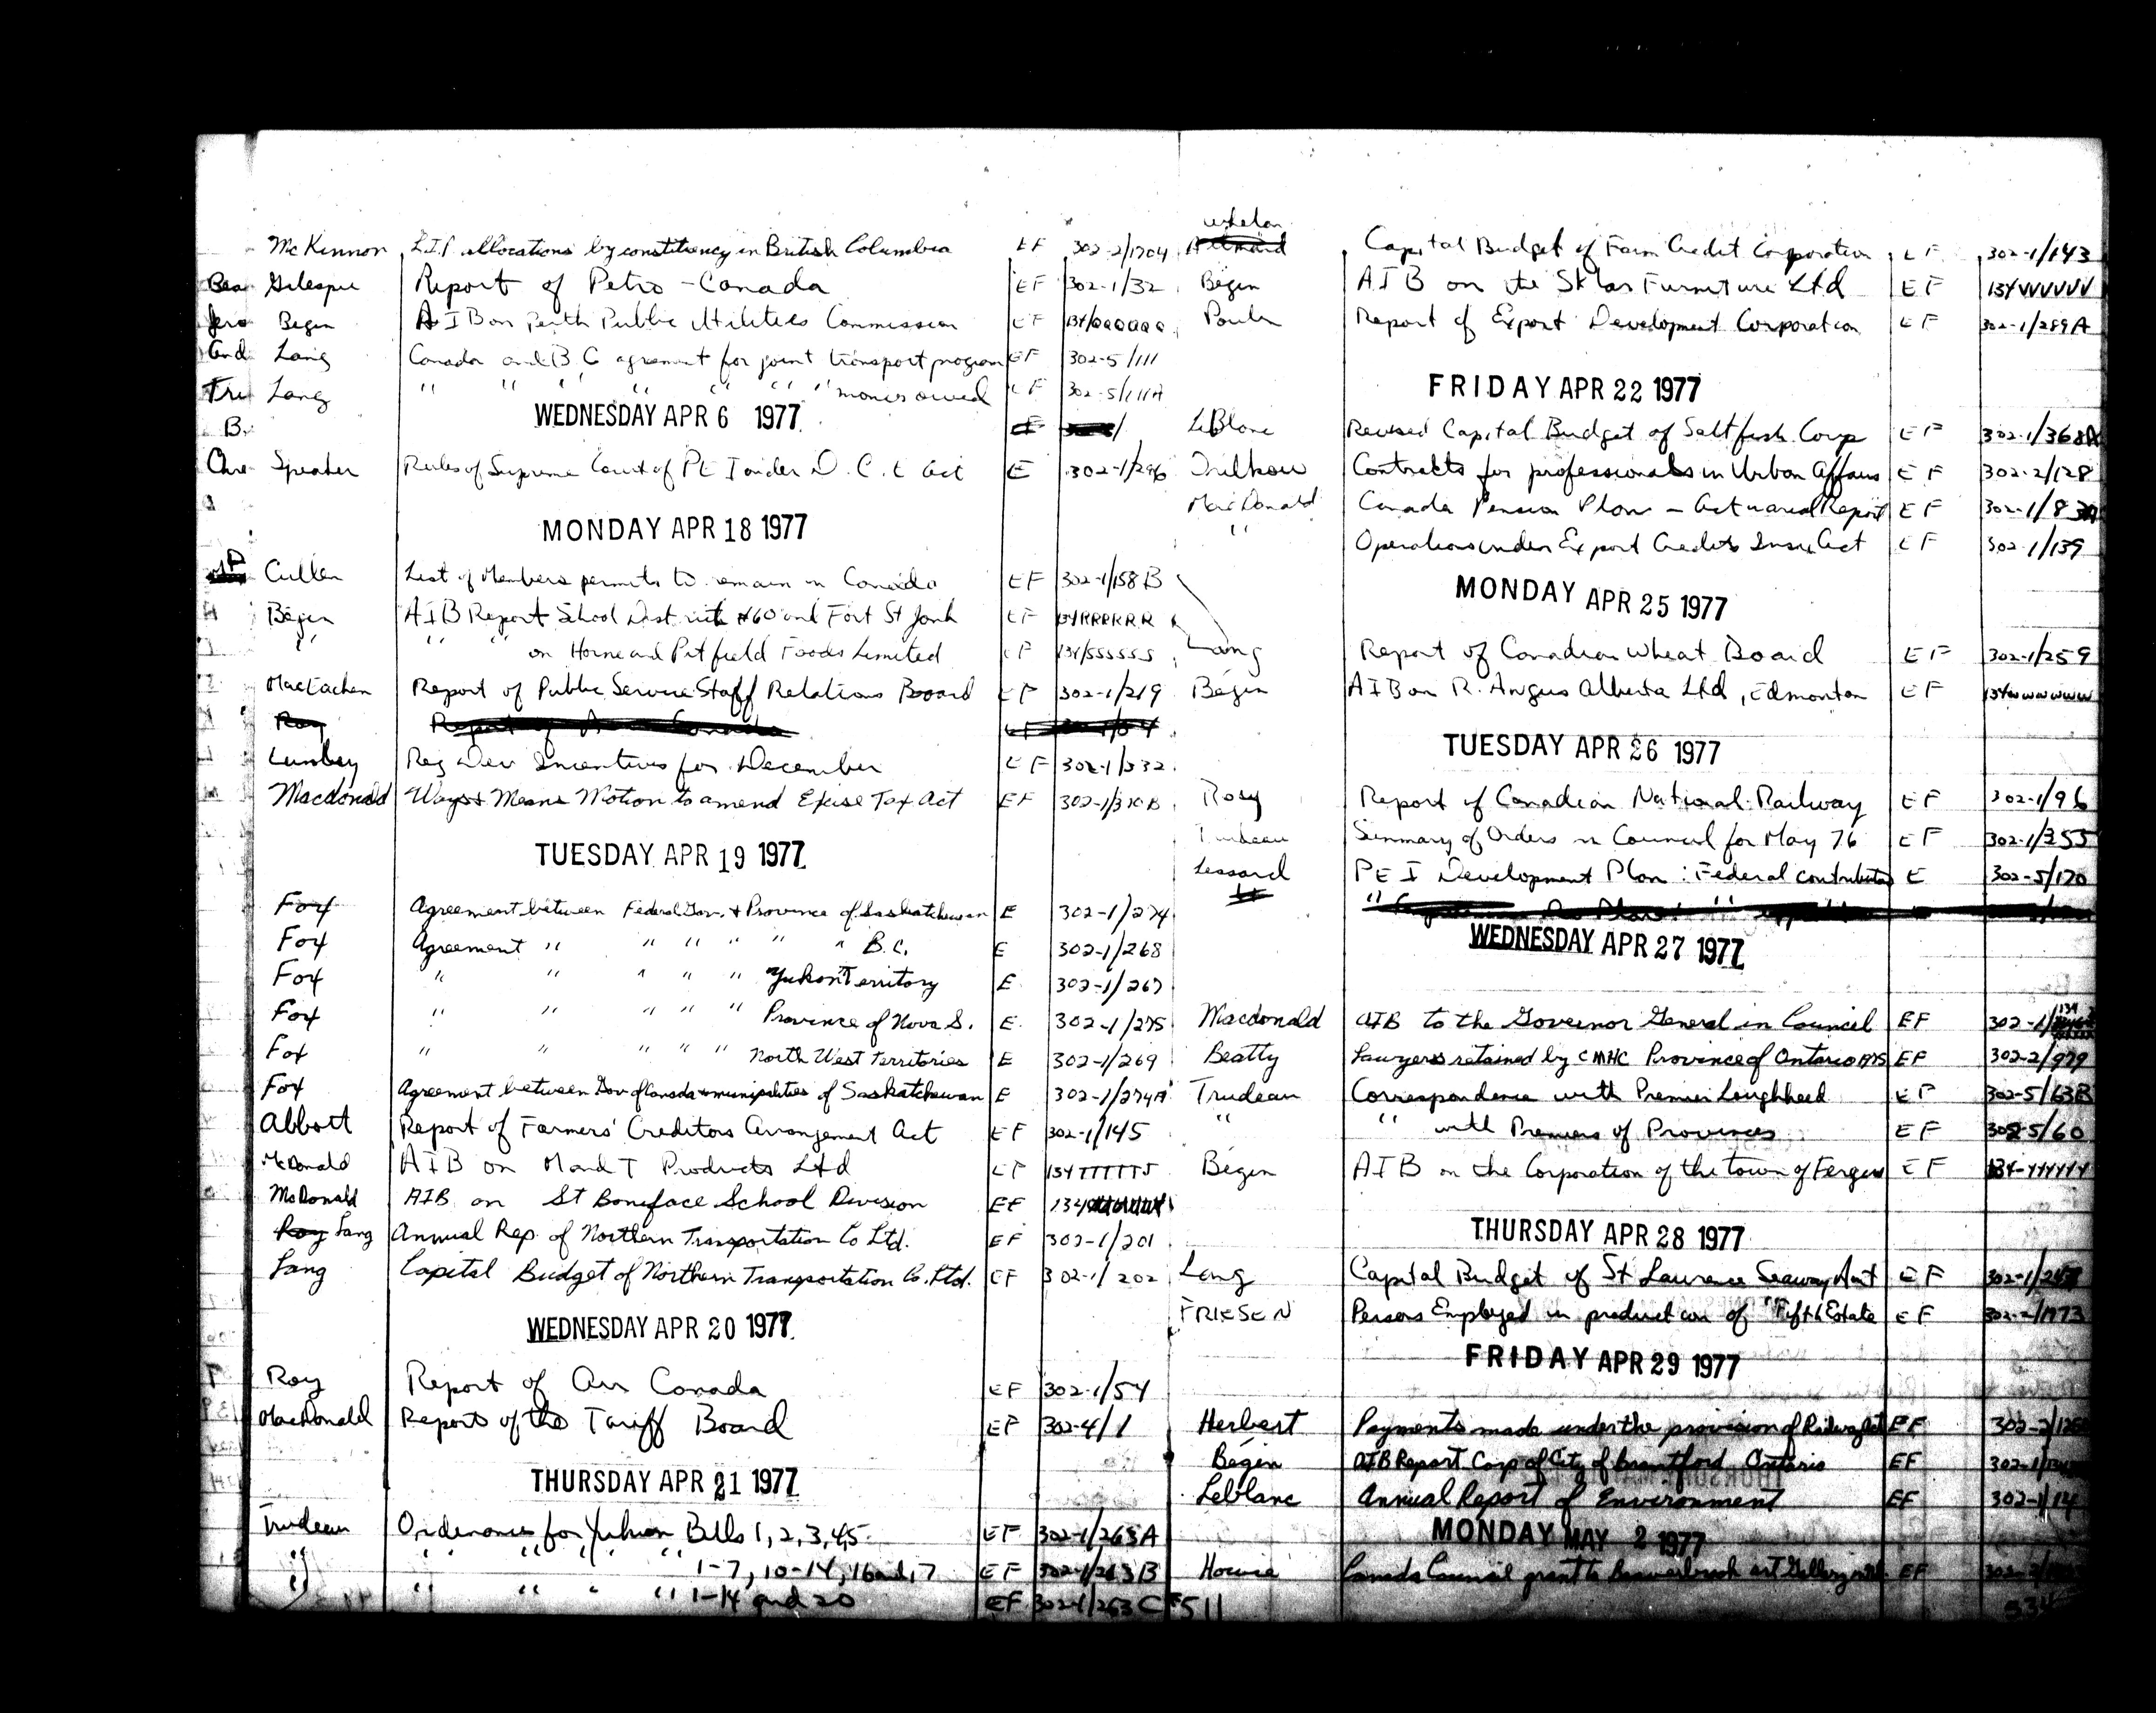 McKinnon L.I.P allocations by constituency in British Columbia EF 302-2/1704
Bea Gilespie Report of Petro-Canada EF 302-1/32
Begin AIB on Perth Public Utilities Commission EF 134/QQQQQQ
And Lang Canada and B.C agreement for joint transport program EF 302-5/111
Tru Lang " " " " " " " monies owed EF 302-5/111A
WEDNESDAY APR 6 1977
B.
Chre Speaker Rules of Supreme Court of PEI under D.C.E Act E 302-1/296
MONDAY APR 18 1977
Cullen List of Members permits to remain in Canada EF 302-1/158B
Bégin AIB Report School District #60 and Fort St Jonh EF 134RRRRRR
" " " on Horne and Pitfield Foods Limited EF 134/SSSSSS
MacEachen Report of Public Service Staff Relations Board EF 302-1/219
Roy Report of Air Canada EF 302-1/54
Reg Dev Incentives for December EF 302-1/332
Macdonald Ways & Means Motion to amend Excise Tax Act EF
TUESDAY APR 19 1977
Fox Agreement between Federal Gov. & Province of Saskatchewan E 302-1/274
Fox Agreement " " " " " " B.C. E 302-1/268
Fox " " " " " Yukon Territory E 302-1/267
Fox " " " " " Province of Nova S. E 302-1/275
Fox " " " " " North West Territories E 302-1/269
Fox Agreement between Gov of Canada & municipalities of Saskatchewan E 302-1/274A
Abbott Report of Farmers' Creditors Arrangement Act EF 302-1/145
McDonald AIB on M and T Products Ltd EF 134TTTTTT
McDonald AIB on St Boniface School Division EF 134
Roy Lang Annual Rep. of Northern Transportation Co Ltd. EF 302-1/201
Lang Capital Budget of Northern Transportation Co. Ltd. EF 302-1/202
WEDNESDAY APR 20 1977
Roy Report of Air Canada EF 302-1/54
MacDonald Reports of the Tariff Board EF 302-4/1
THURSDAY APR 21 1977
Trudeau Ordinances for Yukon Bills 1, 2, 3, 4, 5 EF 302-1/263A
" " " " " 1-7, 10-14, 16 and 17 EF 302-1/263B
" " " " " 1-14 and 20 EF 302-1/263C
Whelan
Capital Budget of Farm Credit Corporation EF 302-1/143
Bégin AIB on the Sklar Furniture Ltd EF 134VVVVVV
Poulin Report of Export Development Corporation EF 302-1/289A
FRIDAY APR 22 1977
LeBlanc Revised Capital Budget of Saltfish Corp EF 302-1/368A
Contracts for professionals in Urban Affairs EF 302-2/128
MacDonald Canada Pension Plan - Actuarial Report EF
" Operations under Export Credits Insur. Act EF 302-1/139
MONDAY APR 25 1977
Lang Report of Canadian Wheat Board EF 302-1/259
Bégin AIB on R. Angus Alberta Ltd, Edmonton EF 134WWWWWW
TUESDAY APR 26 1977
Report of Canadian National Railway EF 302-1/96
Trudeau Summary of Orders in Council for May 76 EF 302-1/355
Lessard PEI Development Plan: Federal contribution E 302-5/170
WEDNESDAY APR 27 1977
Macdonald AIB to the Governor General in Council EF 302-1/134
Beatty Lawyers retained by CMHC Province of Ontario EF 302-2/979
Trudeau Correspondence with Premier Loughheed EF 302-5/63B
" " with Premiers of Provinces EF 302-5/60
Bégin AIB on the Corporation of the town of Fergus EF 134-YYYYYY
THURSDAY APR 28 1977
Lang Capital Budget of St Laurence Seaway Aut EF
FRIESEN Persons Employed in production of "Fifth Estate EF 302-2/1973
FRIDAY APR 29 1977
Herbert Payments made under the provision of Railway Act EF
Bégin AIB Report Corp of City of Brantford Ontario EF
Leblanc Annual Report of Environment EF 302-1/14
MONDAY MAY 2 1977
Howie Canada Council grant to Beaverbrook art Gallery EF
511